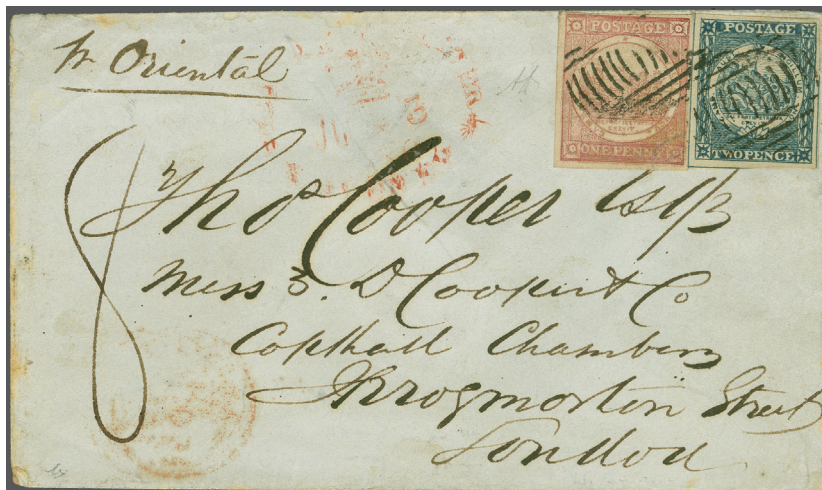 Pr Oriental
POSTAGE
ONE PENNY
POSTAGE
TWOPENCE
8
Thos Cooper Esqr
Mess D Cooper & Co
Copthall Chambers
Throgmorton Street
London